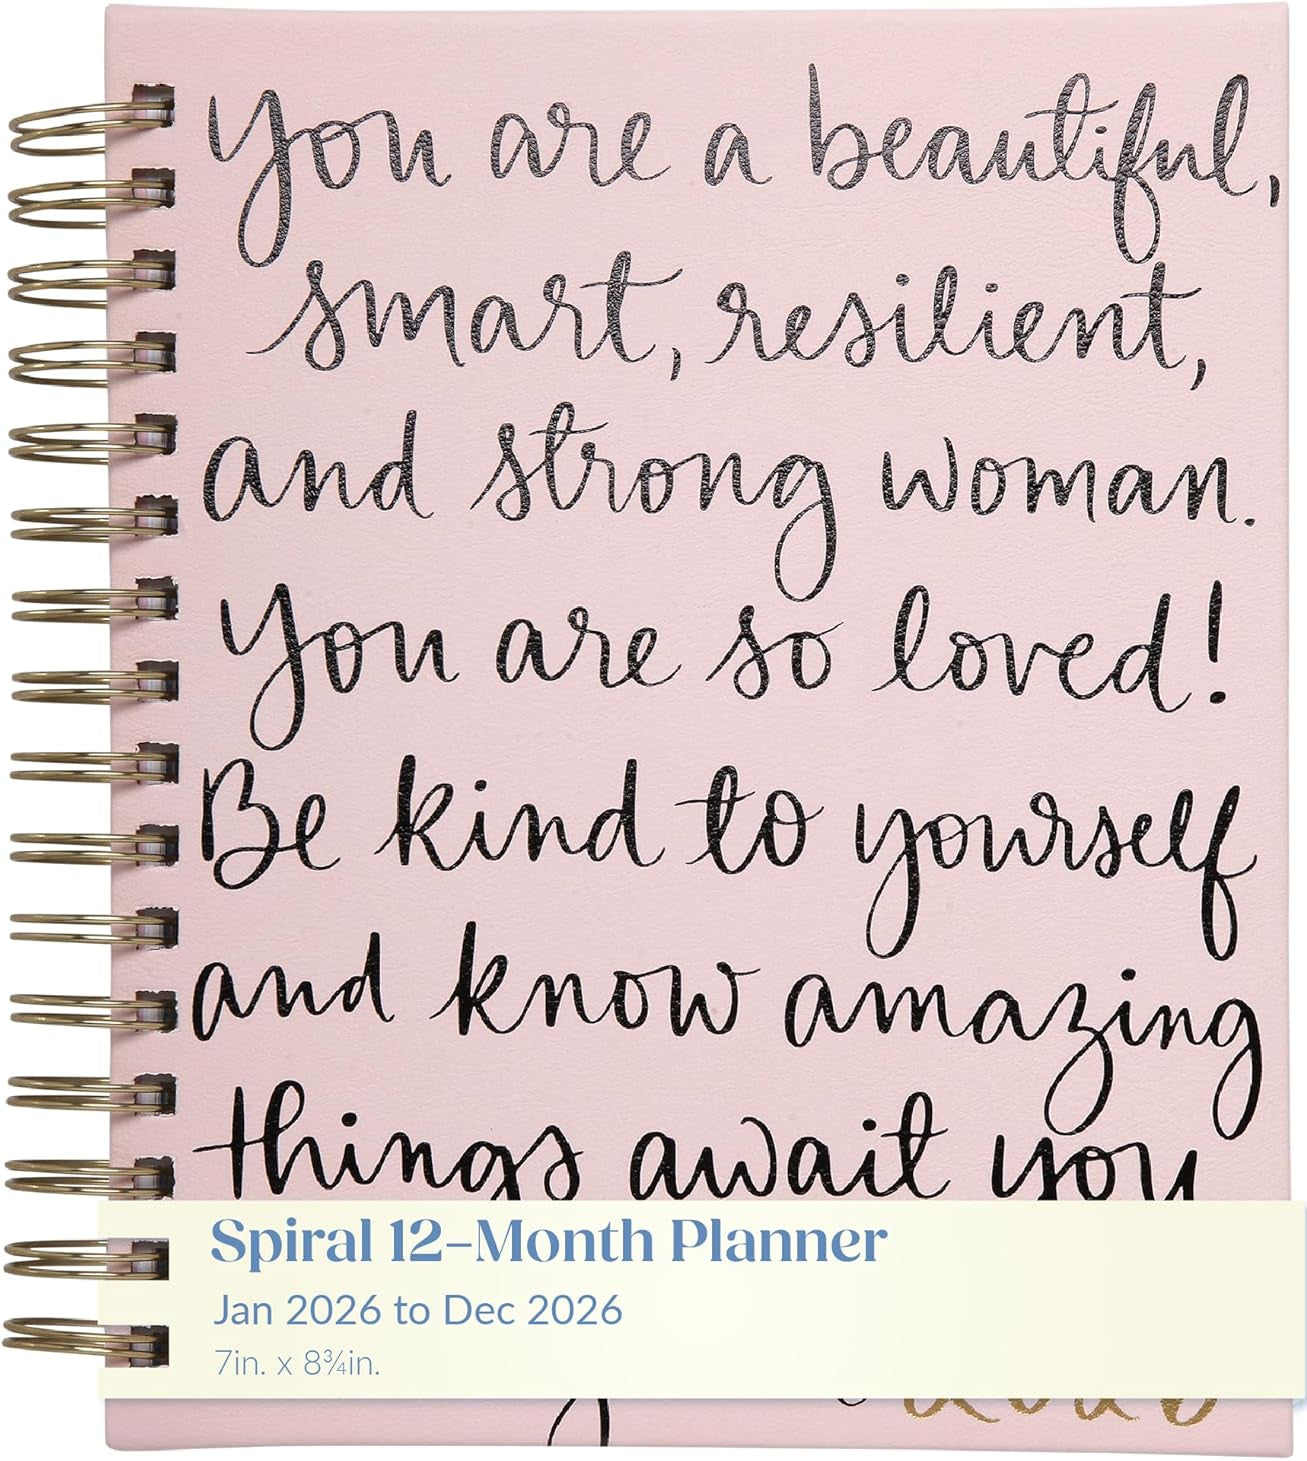 you are a beautiful,
smart, resilient,
and strong woman.
you are so loved!
Be kind to yourself
and know amazing
things await you
Spiral 12-Month Planner
Jan 2026 to Dec 2026
7in. x 8¾in.